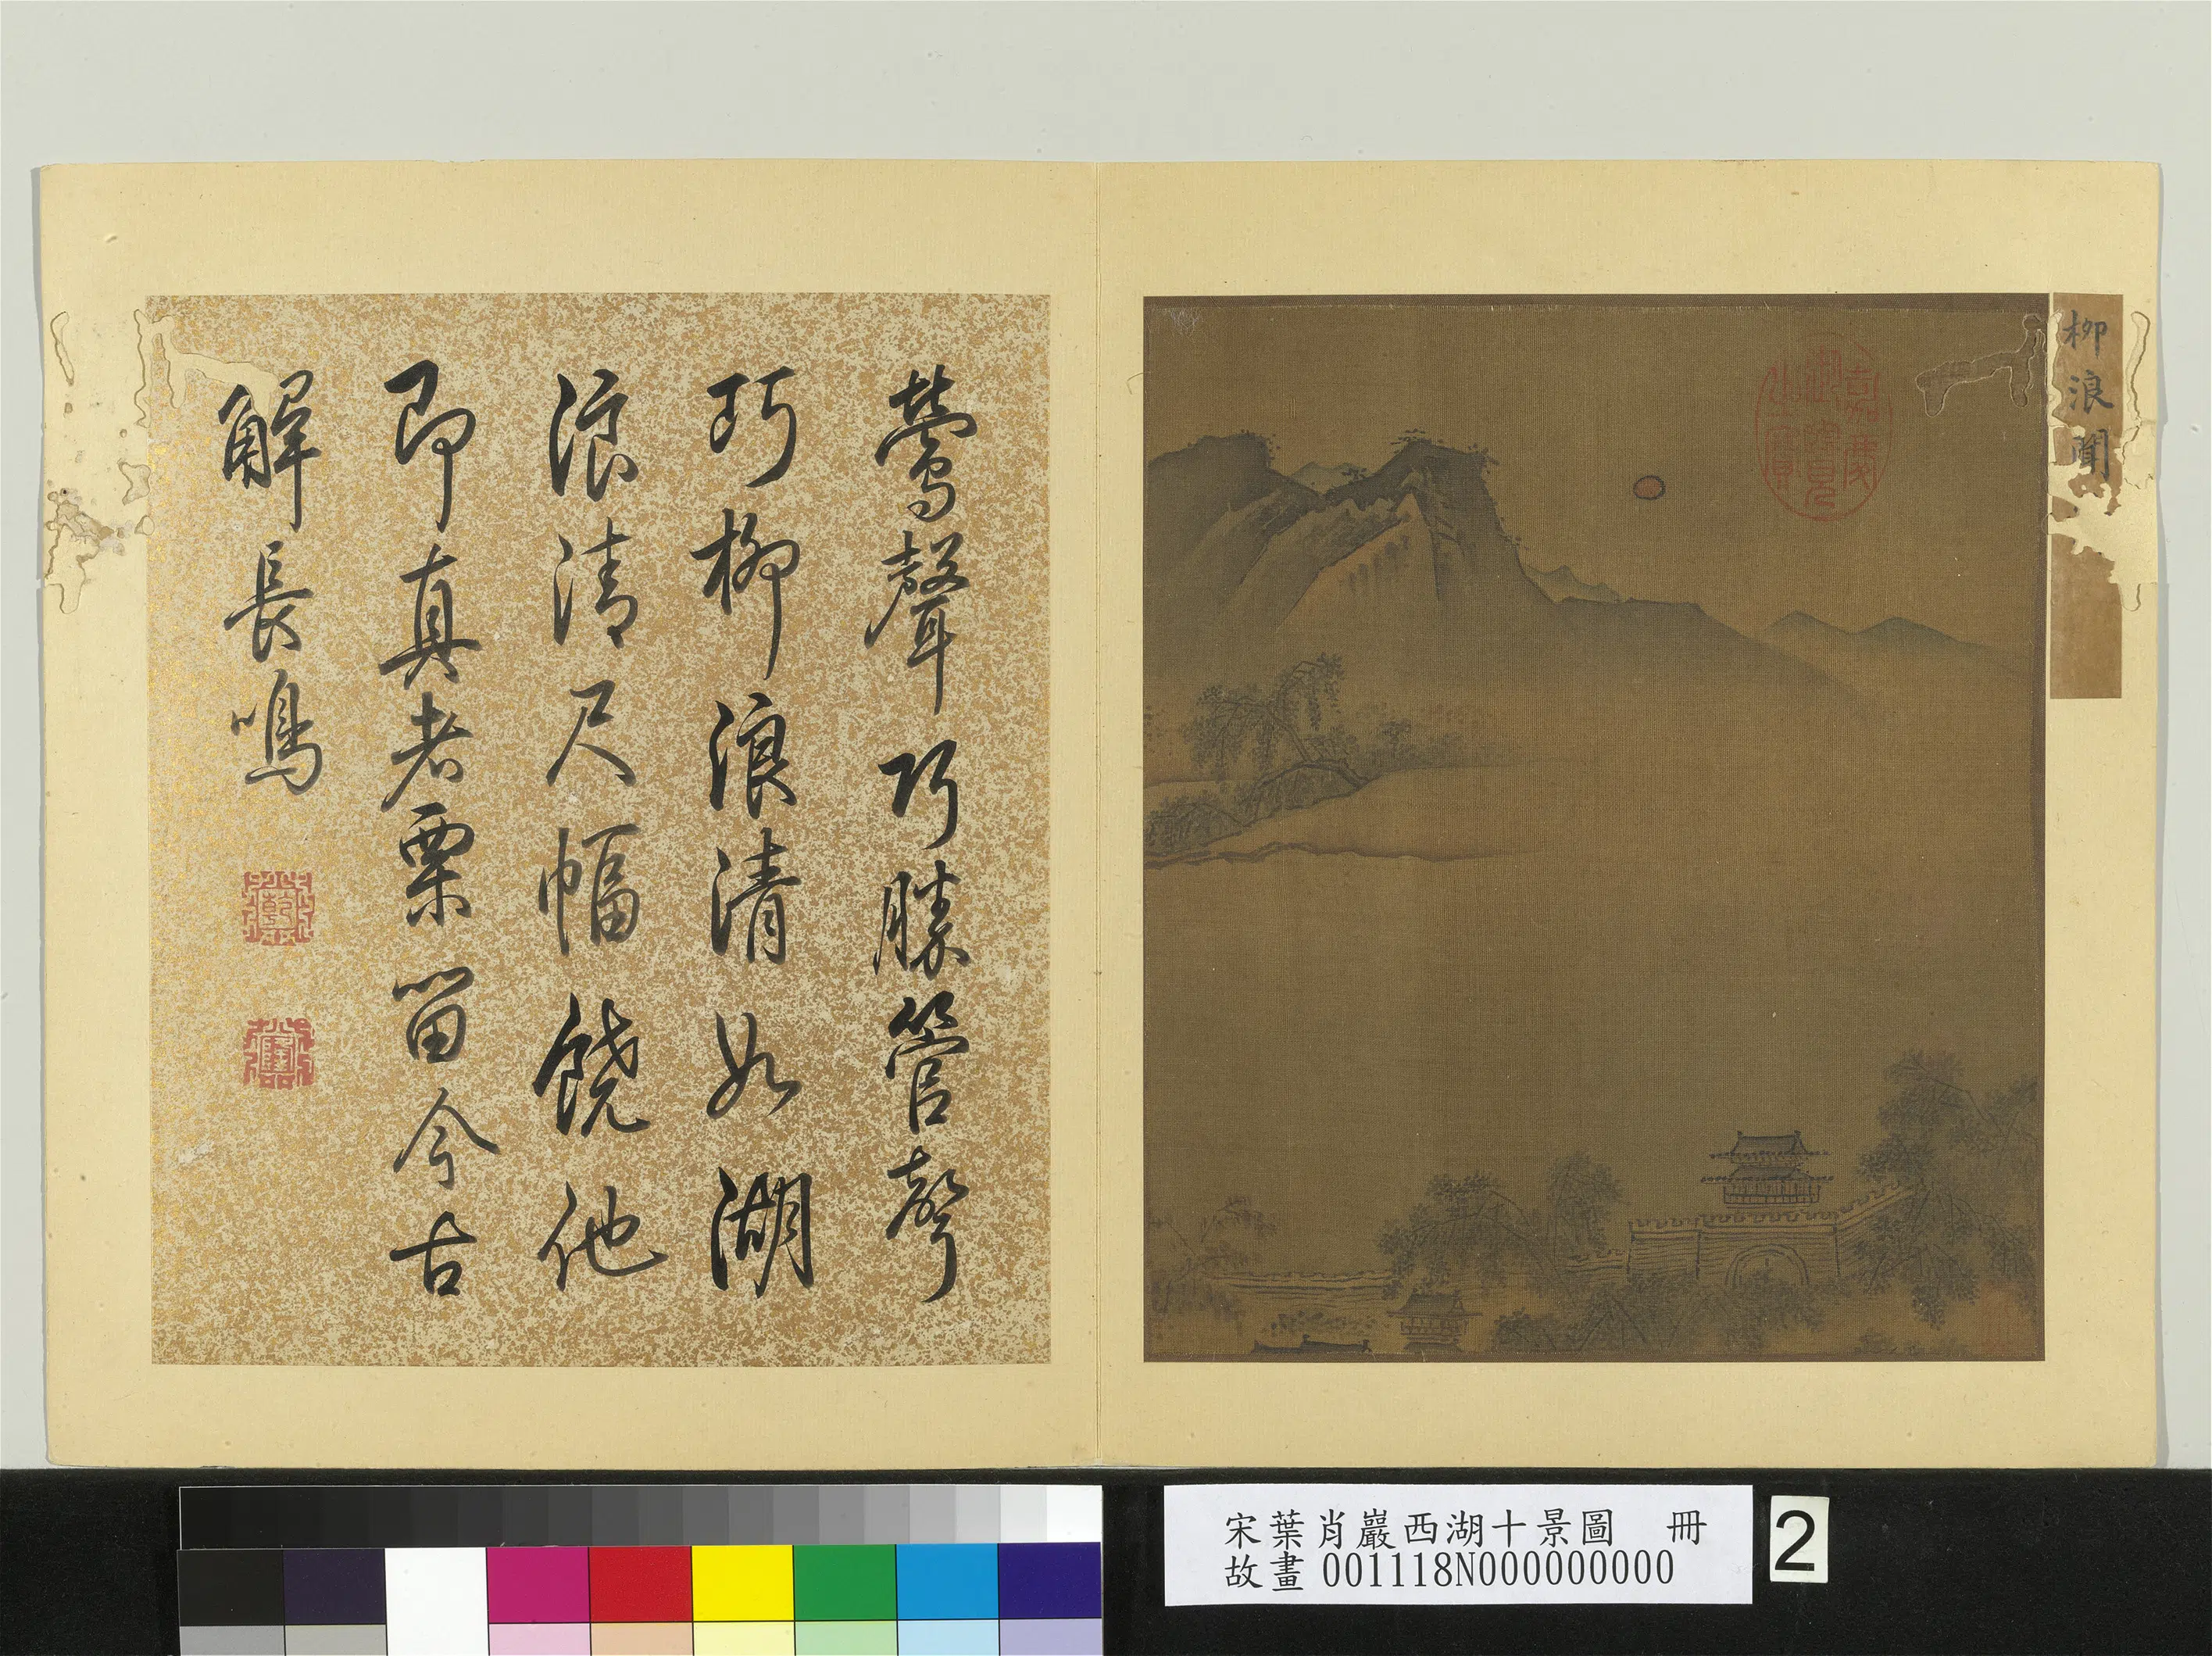 柳浪聞
鶯聲巧勝管聲
巧柳浪清如湖
浪清尺幅饒他
即真者栗留今古
解長鳴
乾
隆
嘉慶御覽之寶
宋葉肖巖西湖十景圖 冊
故畫001118N000000000
2